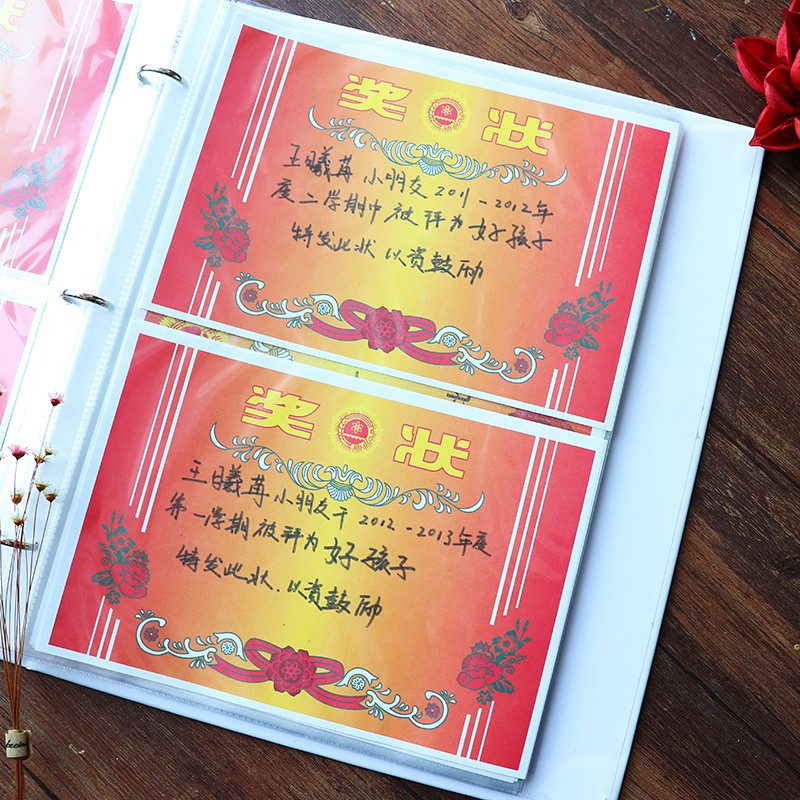 奖状
王曦苒 小朋友 2011-2012年
度二学期中被评为好孩子
特发此状 以资鼓励
奖状
王曦苒小朋友于2012-2013年度
第一学期被评为好孩子
特发此状.以资鼓励